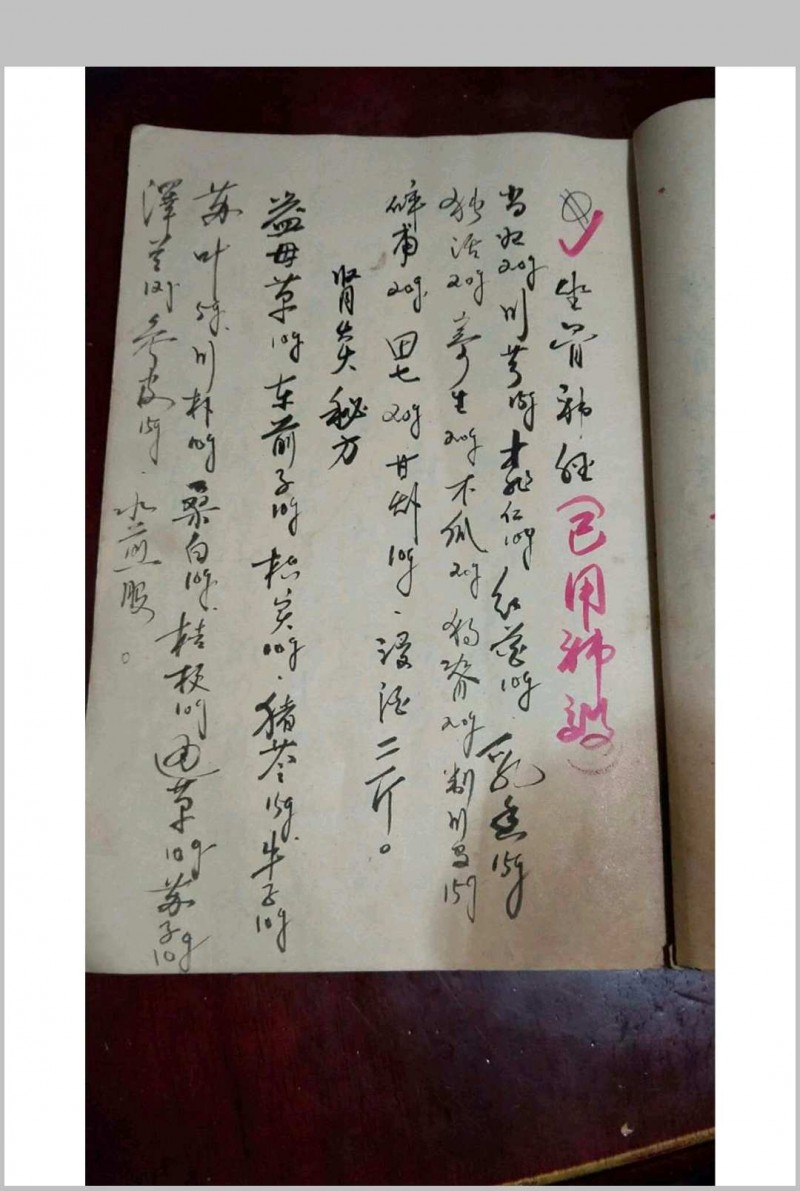 坐骨神经（已用神效）
当归20g 川芎15g 桃仁10g 红花10g、乳香15g
独活20g 寄生20g 木瓜20g 狗脊20g 制川乌15g
碎蛇20g 田七20g 甘草10g、浸酒二斤。
肾炎秘方
益母草10g 车前子10g 枳实10g、猪苓15g 牛子10g
苏叶15g 川朴10g 桑白10g 桔梗10g 通草10g 苏子10g
澤兰10g 苓皮15g、水煎服。